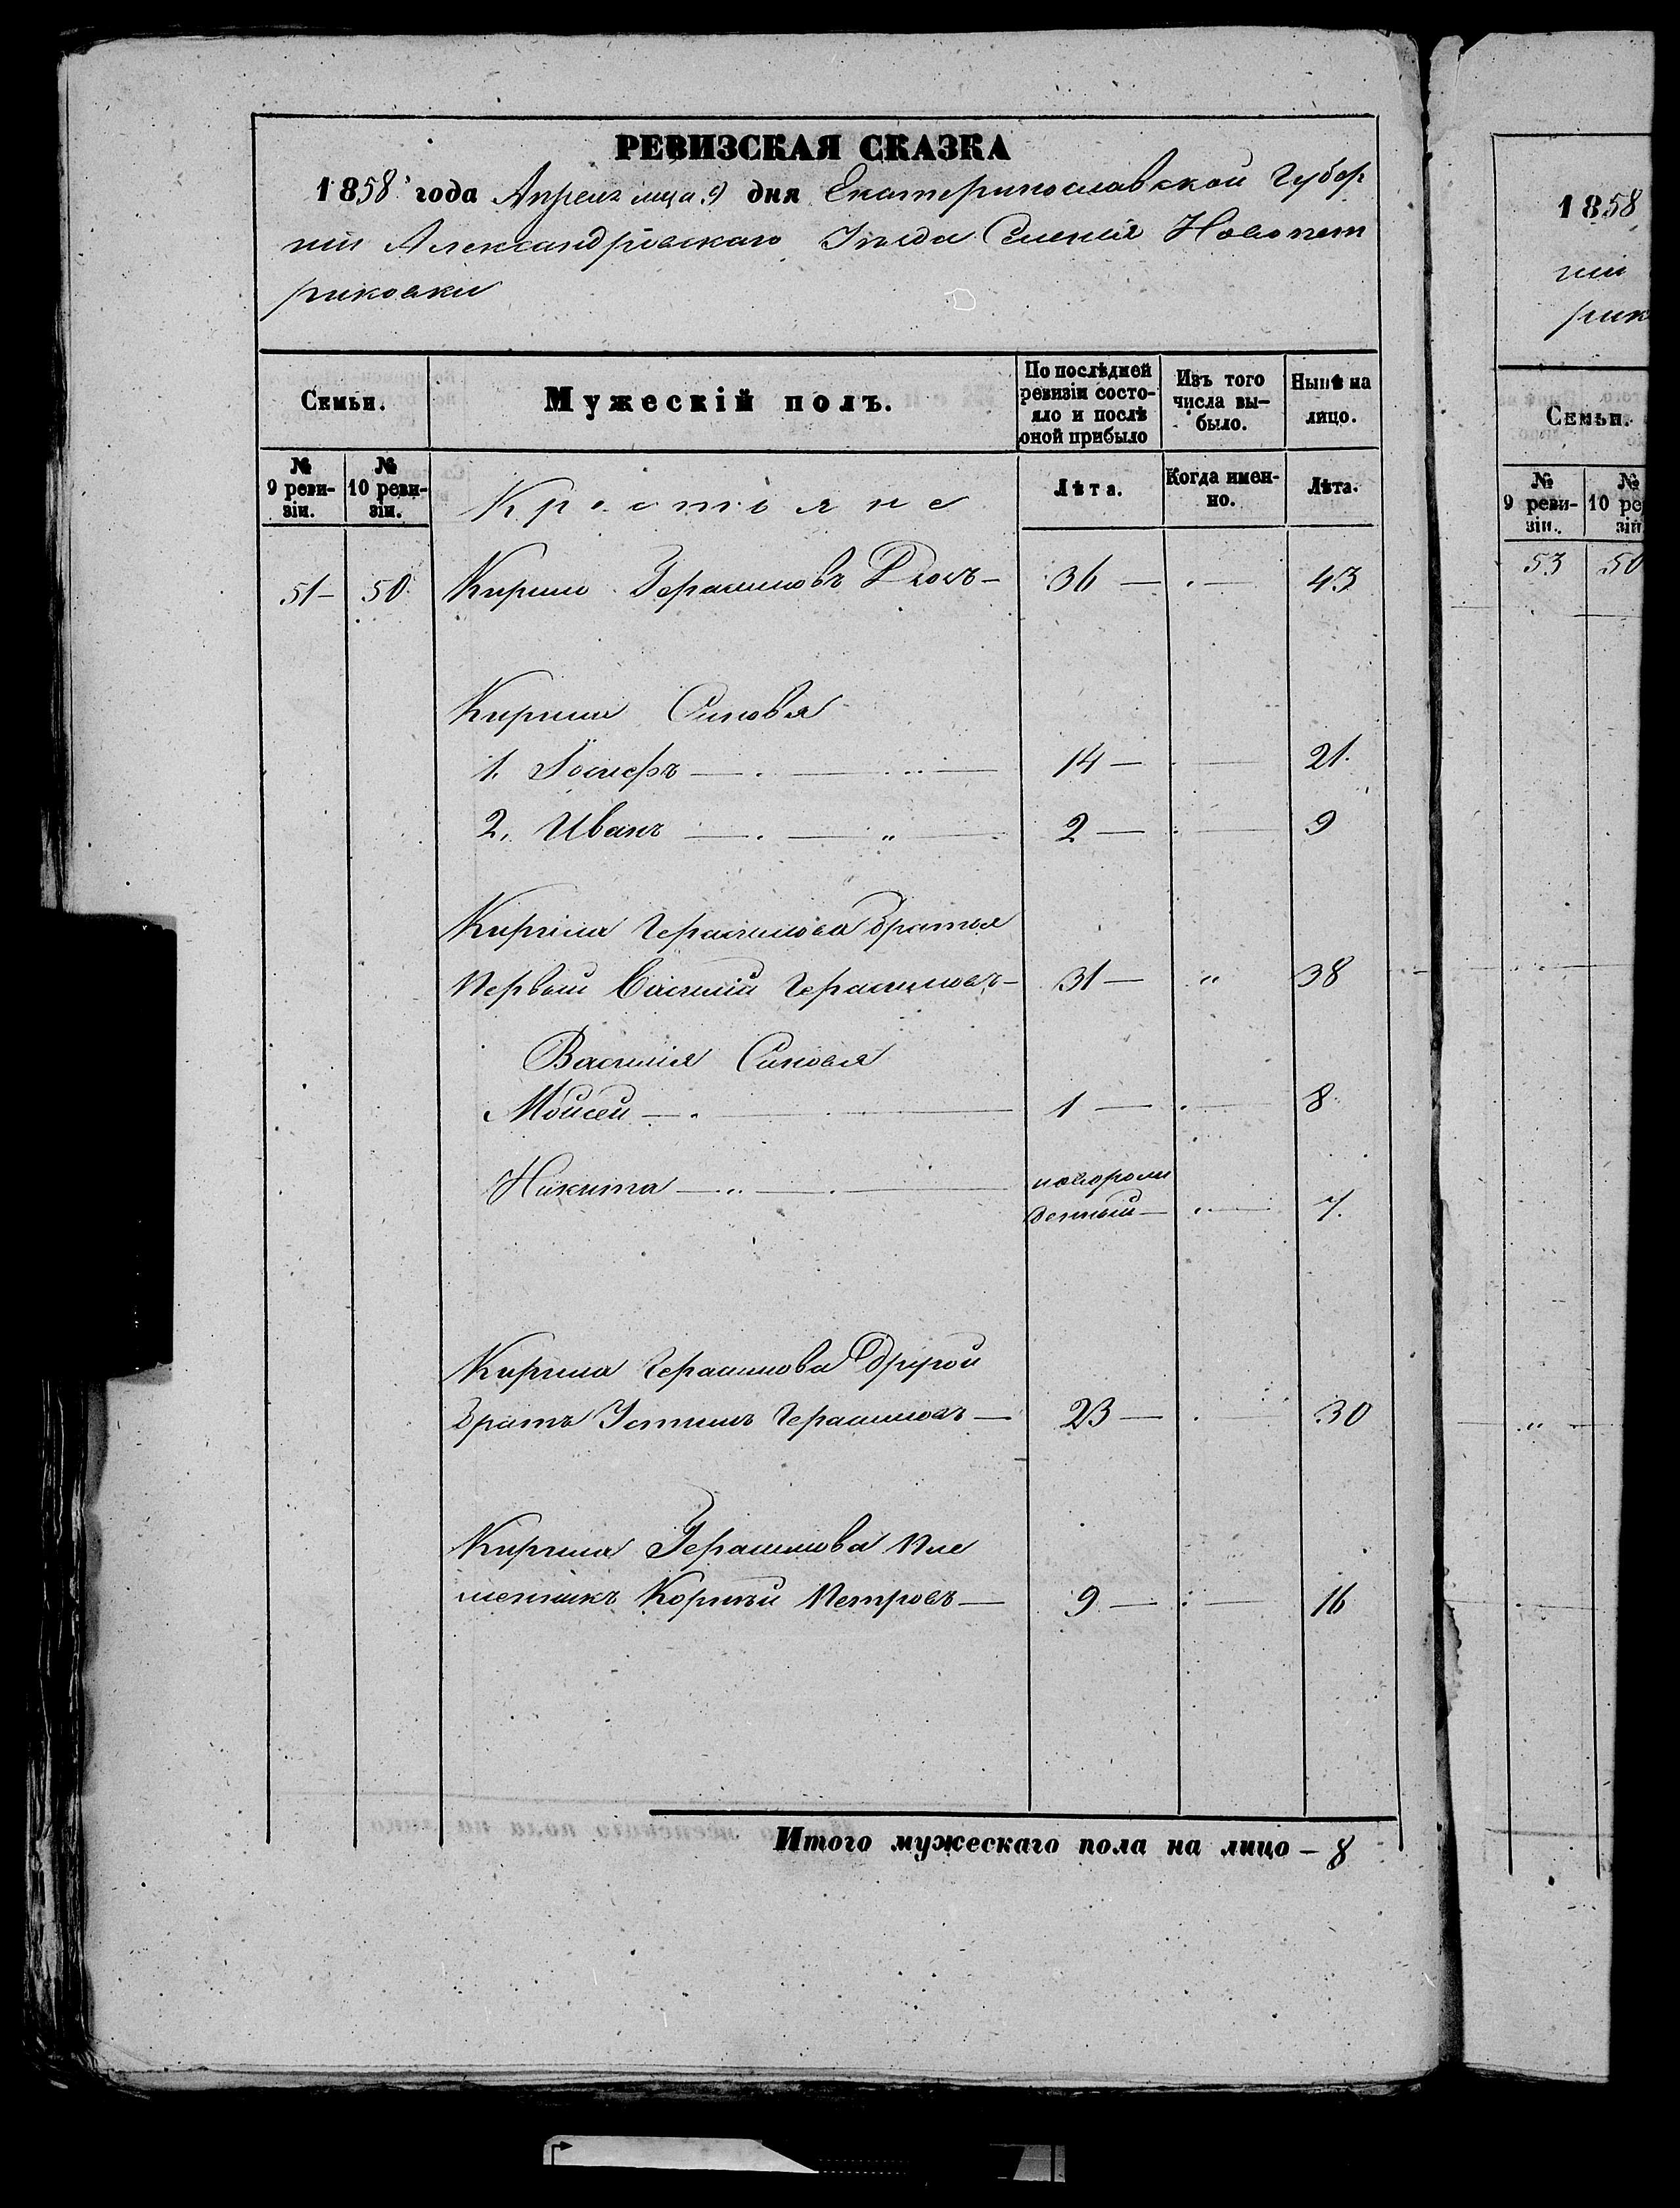 РЕВИЗСКАЯ СКАЗКА
1858 года Апреля мца 9 дня Екатеринославской Губер
ніи Александровскаго Уѣзда Селенія Новопет
риковки
Семьи.
Мужескій полъ.
По послѣдней ревизіи состо-
яло и послѣ оной прибыло
Изъ того числа вы-
было.
Нынѣ на лицо.
№ 9 реви-
зіи.
№ 10 реви-
зіи.
Крестьяне
Лѣта.
Когда имен-
но.
Лѣта.
51 — 50 Кирило Герасимовъ — 36 — 43
Кирила Синовья
1. Іосифъ — 14 — 21.
2. Иванъ — 2 — 9
Кирила Герасимова братья
Первый Василій Герасимовъ — 31 — " 38
Василія Синовья
Мойсей — 1 — 8
Никита — новорож
денный — 7.
Кирила Герасимова Другой
братъ Устинъ Герасимовъ — 23 — 30
Кирила Герасимова Пле
менникъ Корнѣй Петровъ — 9 — 16
Итого мужескаго пола на лицо — 8
1858
ніи
рик
Семьи.
№ 9 реви-
зіи.
№ 10 ре
зіи
53 50